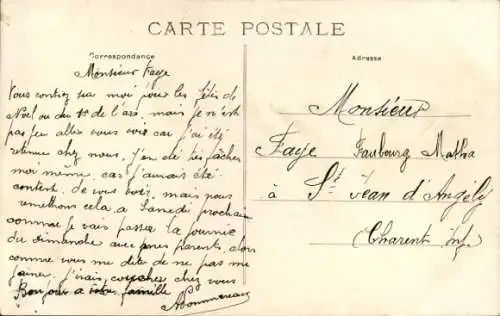 CARTE POSTALE
Correspondance
Adresse
Monsieur Faye
Vous contiez sur moi pour les fêtes de
Noël ou du 1er de l'an, mais je n'est
pas peu aller vous voir car j'ai été
retenue chez nous, j'en été fâcher
moi même car j'aurais été
content de vous voir, mais nous
remettons cela a Samedi prochain
comme je vais passer la journée
du dimanche avec mes parents, alors
comme vous me dite de ne pas me
gainer. j'irais coucher chez vous
Bonjour a votre famille
Monsieur
Faye Faubourg Matha
à St Jean d'Angély
Charent Infre